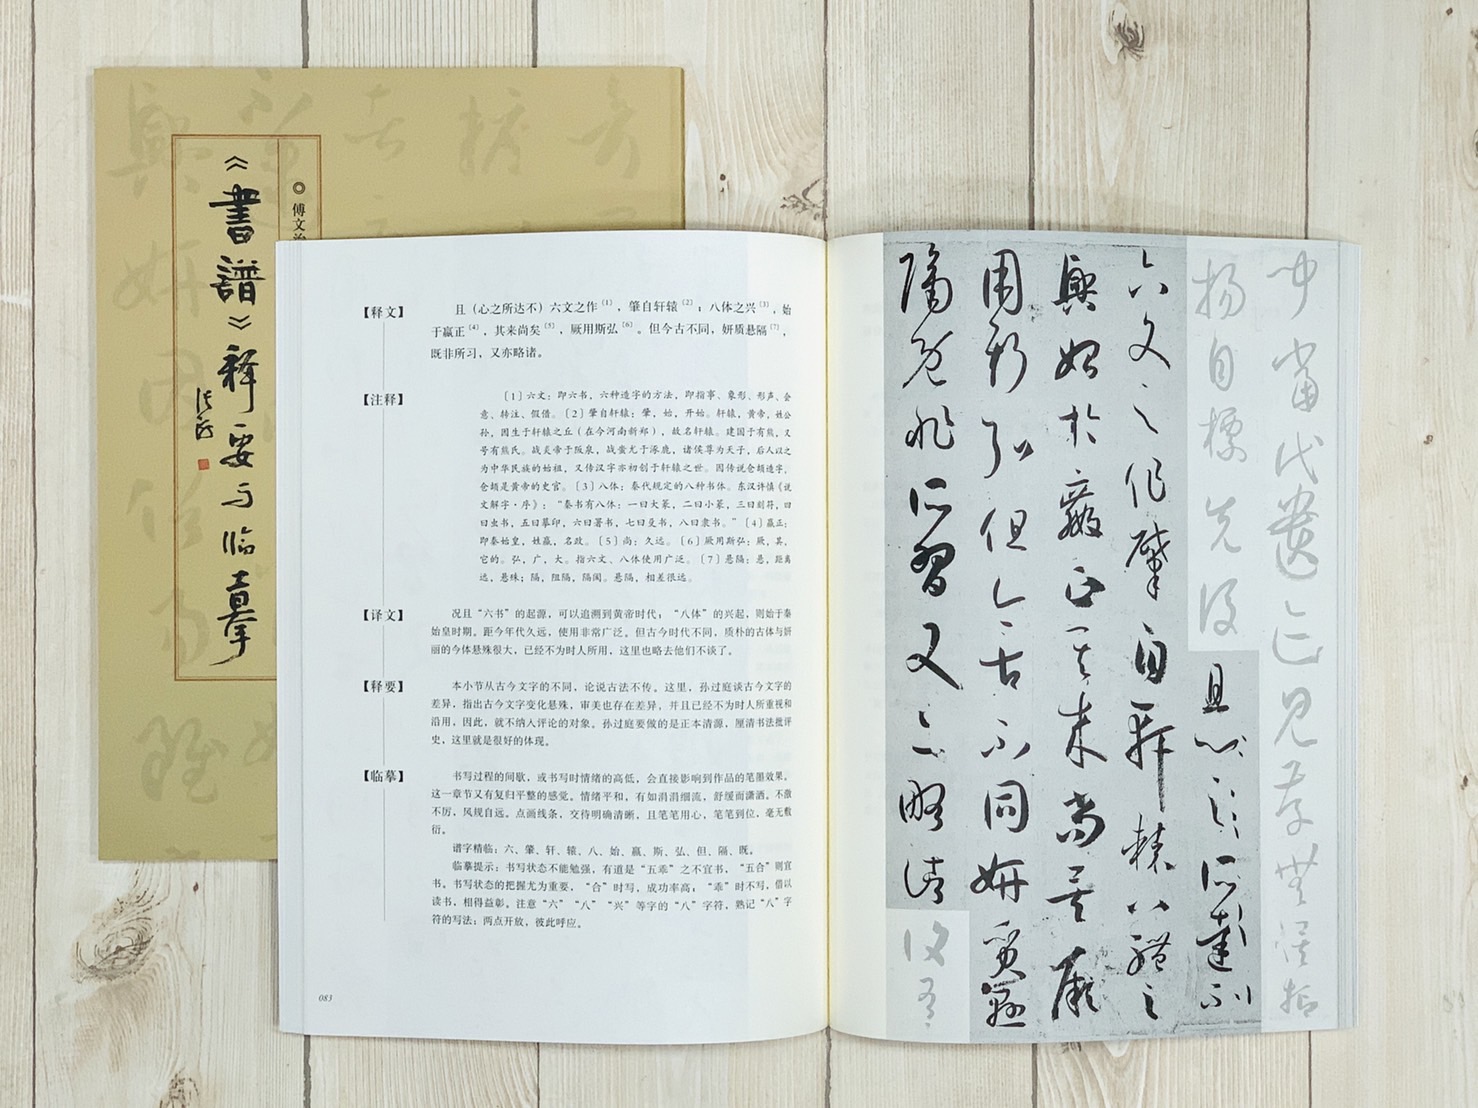 《書譜》释要与临摹
◎ 傅文治
【释文】
且（心之所达不）六文之作〔1〕，肇自轩辕〔2〕；八体之兴〔3〕，始
于嬴正〔4〕，其来尚矣〔5〕，厥用斯弘〔6〕。但今古不同，妍质悬隔〔7〕，
既非所习，又亦略诸。
【注释】
〔1〕六文：即六书，六种造字的方法，即指事、象形、形声、会
意、转注、假借。〔2〕肇自轩辕：肇，始，开始。轩辕，黄帝，姓公
孙，因生于轩辕之丘（在今河南新郑），故名轩辕。建国于有熊，又
号有熊氏。战炎帝于阪泉，战蚩尤于涿鹿，诸侯尊为天子，后人以之
为中华民族的始祖，又传汉字亦初创于轩辕之世。因传说仓颉造字，
仓颉是黄帝的史官。〔3〕八体：秦代规定的八种书体。东汉许慎《说
文解字·序》：“秦书有八体：一曰大篆，二曰小篆，三曰刻符，四
曰虫书，五曰摹印，六曰署书，七曰殳书，八曰隶书。”〔4〕嬴正：
即秦始皇，姓嬴，名政。〔5〕尚：久远。〔6〕厥用斯弘：厥，其，
它的。弘，广，大。指六文、八体使用广泛。〔7〕悬隔：悬，距离
远，悬殊；隔，阻隔，隔阂。悬隔，相差很远。
【译文】
况且“六书”的起源，可以追溯到黄帝时代；“八体”的兴起，则始于秦
始皇时期。距今年代久远，使用非常广泛。但古今时代不同，质朴的古体与妍
丽的今体悬殊很大，已经不为时人所用，这里也略去他们不谈了。
【释要】
本小节从古今文字的不同，论说古法不传。这里，孙过庭谈古今文字的
差异，指出古今文字变化悬殊，审美也存在差异，并且已经不为时人所重视和
沿用，因此，就不纳入评论的对象。孙过庭要做的是正本清源，厘清书法批评
史，这里就是很好的体现。
【临摹】
书写过程的间歇，或书写时情绪的高低，会直接影响到作品的笔墨效果。
这一章节又有复归平整的感觉。情绪平和，有如涓涓细流，舒缓而潇洒。不激
不厉，风规自远。点画线条，交待明确清晰，且笔笔用心，笔笔到位，毫无敷
衍。
谱字精临：六、肇、轩、辕、八、始、嬴、斯、弘、但、隔、既。
临摹提示：书写状态不能勉强，有道是“五乖”之不宜书，“五合”则宜
书。书写状态的把握尤为重要，“合”时写，成功率高；“乖”时不写，借以
读书，相得益彰。注意“六”“八”“兴”等字的“八”字符，熟记“八”字
符的写法：两点开放，彼此呼应。
083
中当代遗迹见存无误拓
扬自標先後且心之所達不
六文之作肇自軒轅八體之
興始於嬴正其来尚矣厥
用斯弘但今古不同妍質懸
隔既非所習又亦略諸復有